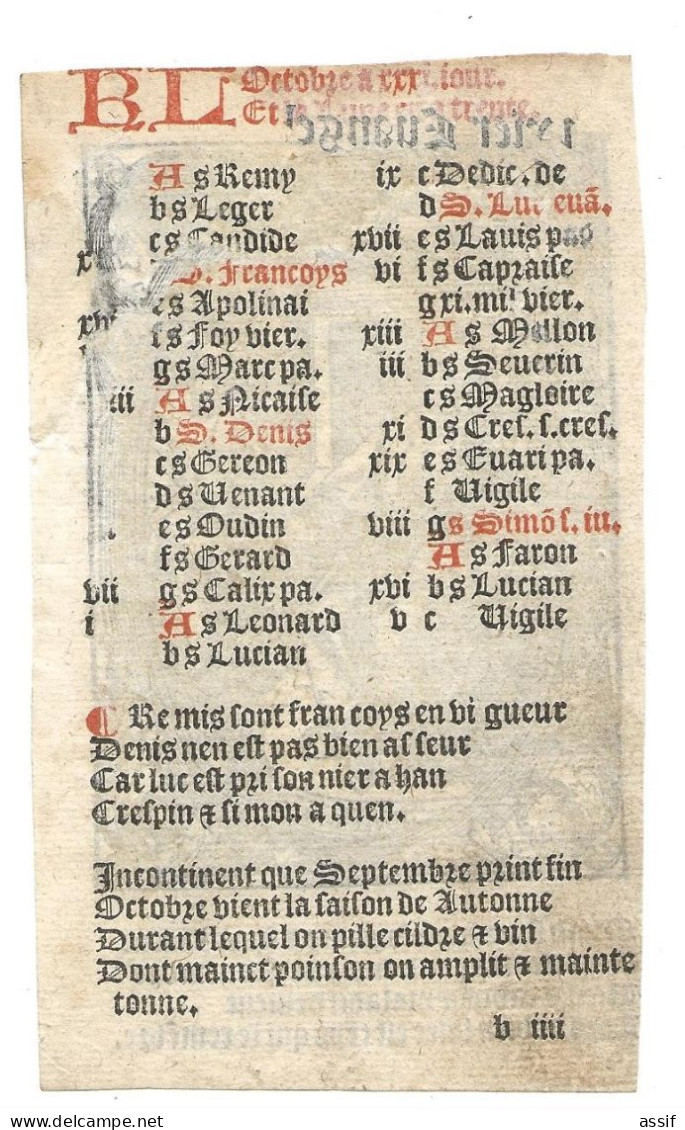 KL Octobre a xxxi. iour.
Et la lune trente.
A s Remy
b s Leger
c s Candide
S. Francoys
e s Apolinai
f s Foy vier.
g s Marc pa.
A s Nicaise
b S. Denis
c s Gereon
d s Venant
e s Oudin
f s Gerard
vii g s Calix pa.
i A s Leonard
b s Lucian
ix c Dedic. de
d S. Luc euā.
xvii e s Lauis
vi f s Capraise
g xi. mil vier.
xiii A s Mellon
iii b s Seuerin
c s Magloire
xi d s Cres. s. cres.
xix e s Euari pa.
f Uigile
viii g s Simō s. iu.
A s Faron
xvi b s Lucian
v c Uigile
C Re mis sont fran coys en vi gueur
Denis nen est pas bien as seur
Car luc est pri son nier a han
Crespin & si mon a quen.
Incontinent que Septembre print fin
Octobre vient la saison de Autonne
Durant lequel on pille cildre & vin
Dont mainct poinson on amplit & mainte
tonne.
b iiii